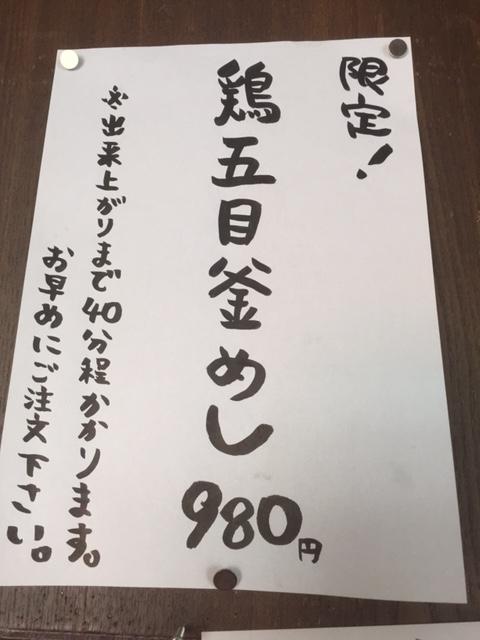 限定!
鶏五目釜めし
980円
※出来上がりまで40分程かかります。
お早めにご注文下さい。